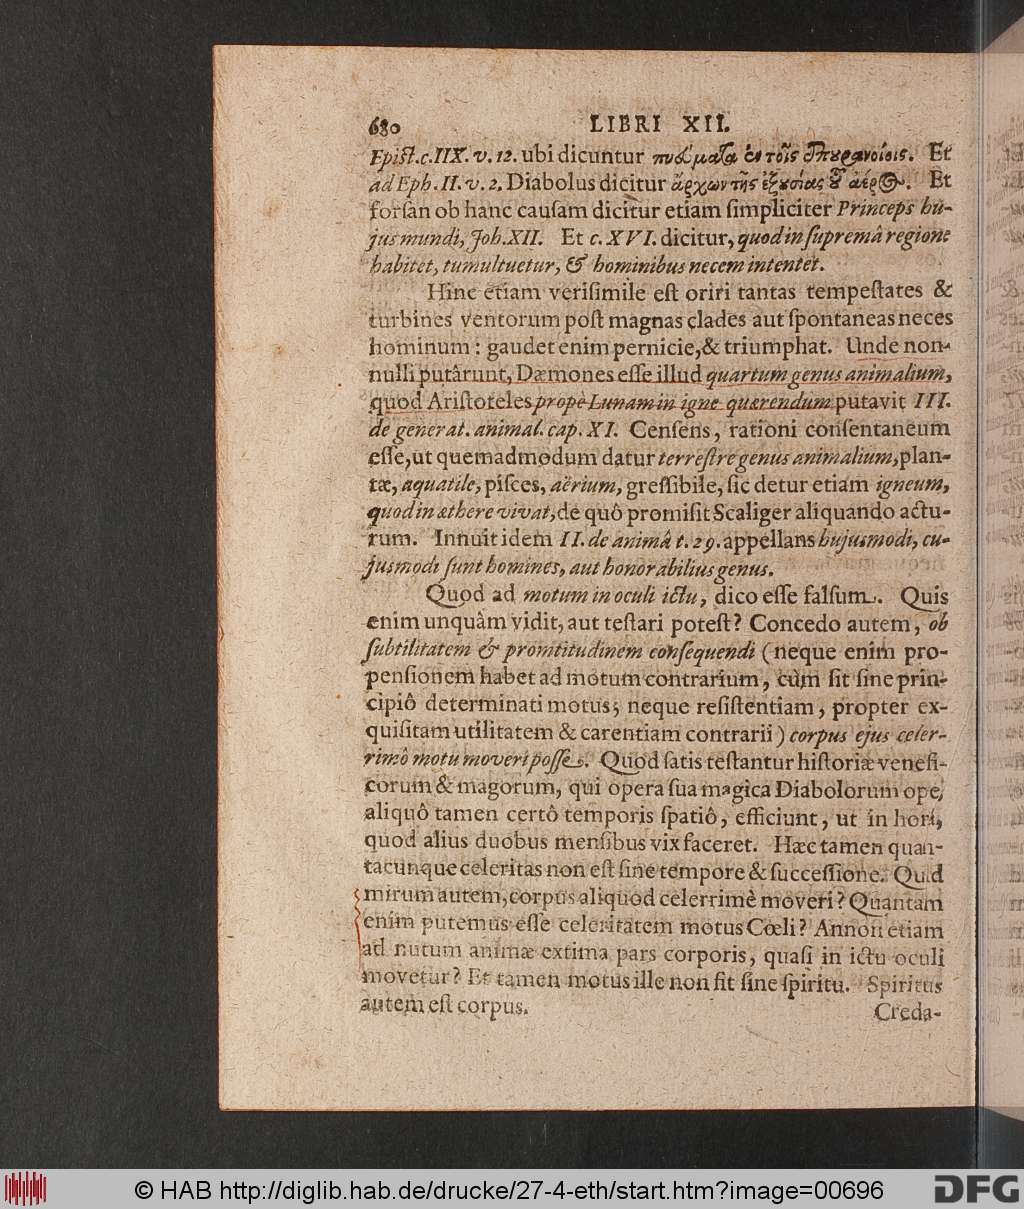 680 LIBRI XII.
Epist. c. IIX. v. 12. ubi dicuntur πνεύματα ἐν τοῖς ἐπουρανοίοις. Et
ad Eph. II. v. 2. Diabolus dicitur ἄρχων τῆς ἐξουσίας τοῦ ἀέρος. Et
forsan ob hanc causam dicitur etiam simpliciter Princeps hu-
jus mundi, Joh. XII. Et c. XVI. dicitur, quod in supremâ regione
habitet, tumultuetur, & hominibus necem intentet.
Hinc etiam verisimile est oriri tantas tempestates &
turbines ventorum post magnas clades aut spontaneas neces
hominum: gaudet enim pernicie, & triumphat. Unde non-
nulli putârunt, Dæmones esse illud quartum genus animalium,
quod Aristoteles propè Lunam in igne quærendum putavit III.
de generat. animal. cap. XI. Censens, rationi consentaneum
esse, ut quemadmodum datur terrestre genus animalium, plan-
tæ, aquatile, pisces, aërium, gressibile, sic detur etiam igneum,
quod in æthere vivat, de quô promisit Scaliger aliquando actu-
rum. Innuit idem II. de animâ t. 29. appellans hujusmodi, cu-
jusmodi sunt homines, aut honorabilius genus.
Quod ad motum in oculi ictu, dico esse falsum. Quis
enim unquàm vidit, aut testari potest? Concedo autem, ob
subtilitatem & promtitudinem consequendi (neque enim pro-
pensionem habet ad motum contrarium, cùm sit sine prin-
cipiô determinati motus; neque resistentiam, propter ex-
quisitam utilitatem & carentiam contrarii) corpus ejus celer-
rimô motu moveri posse. Quod satis testantur historiæ venefi-
corum & magorum, qui opera sua magica Diabolorum ope,
aliquô tamen certô temporis spatiô, efficiunt, ut in horâ,
quod alius duobus mensibus vix faceret. Hæc tamen quan-
tacunque celeritas non est sine tempore & successione. Quid
mirum autem, corpus aliquod celerrimè moveri? Quantam
enim putemus esse celeritatem motus Cœli? Annon etiam
ad nutum animæ extima pars corporis, quasi in ictu oculi
movetur? Et tamen motus ille non fit sine spiritu. Spiritus
autem est corpus.
Creda-
© HAB http://diglib.hab.de/drucke/27-4-eth/start.htm?image=00696
DFG